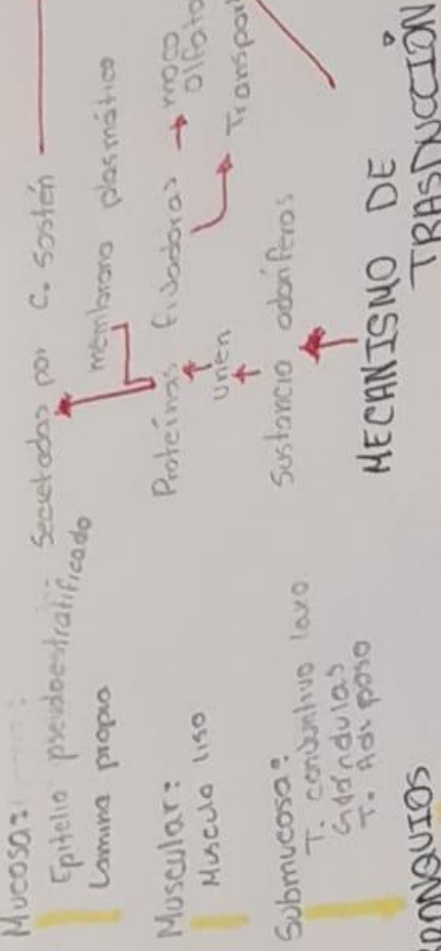 Mucosa:
Epitelio pseudoestratificado
Lamina propia
Muscular:
Musculo liso
Submucosa:
T. conjuntivo laxo
Glándulas
T. Adiposo
Secretadas por C. Sostén
membrana plasmática
Proteínas fijadoras → moco
olfato
unen
Transpor
Sustancia odoríferas
MECANISMO DE
TRASDUCCIÓN
RONQUIOS